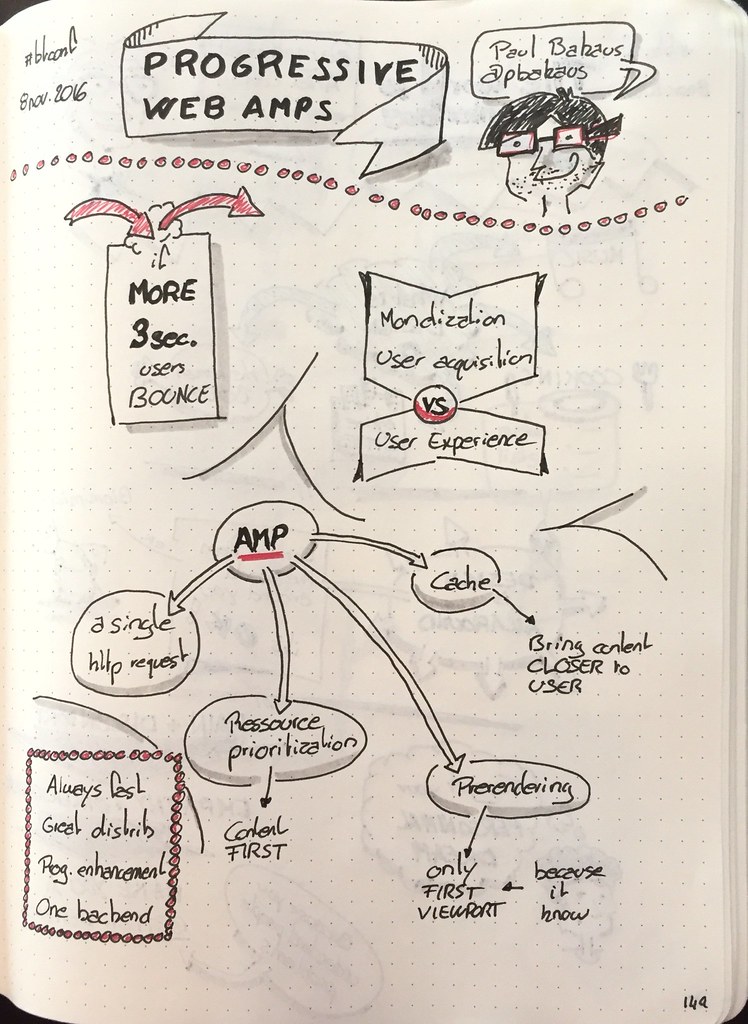 #blconf
8 nov. 2016
PROGRESSIVE
WEB AMPS
Paul Bakaus
@pbakaus
if
MORE
3 sec.
users
BOUNCE
Monetization
User acquisition
VS
User Experience
AMP
Cache
Bring content
CLOSER to
USER
a single
http request
Ressource
prioritization
Content
FIRST
Prerendering
only
FIRST
VIEWPORT
because
it
know
Always fast
Great distrib
Prog. enhancement
One backend